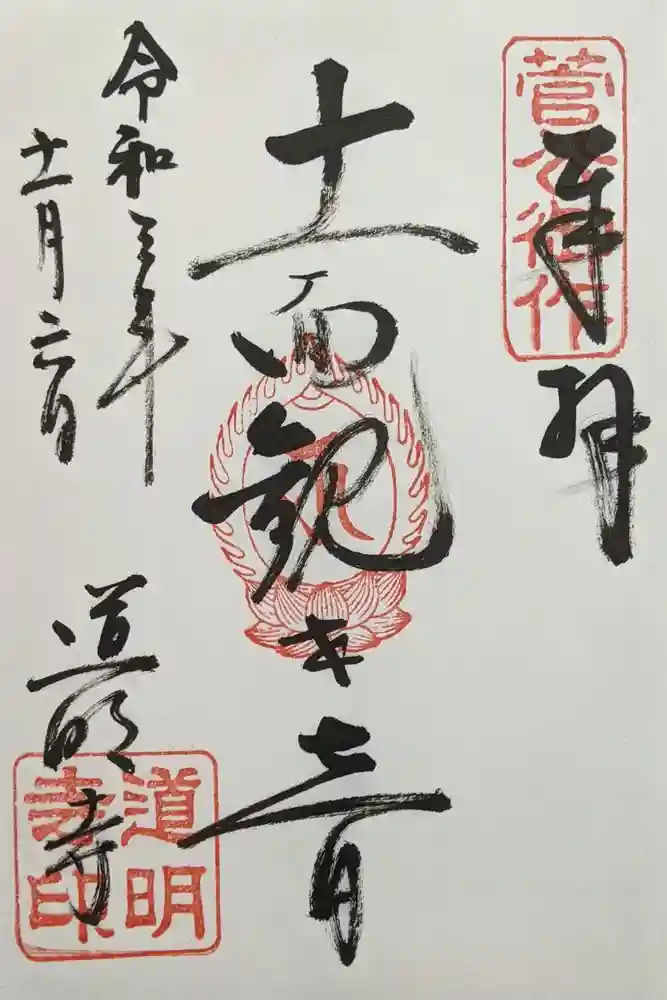 菅公御作
奉拝
十一面観世音
令和三年
十一月 日
道明寺
道明寺印